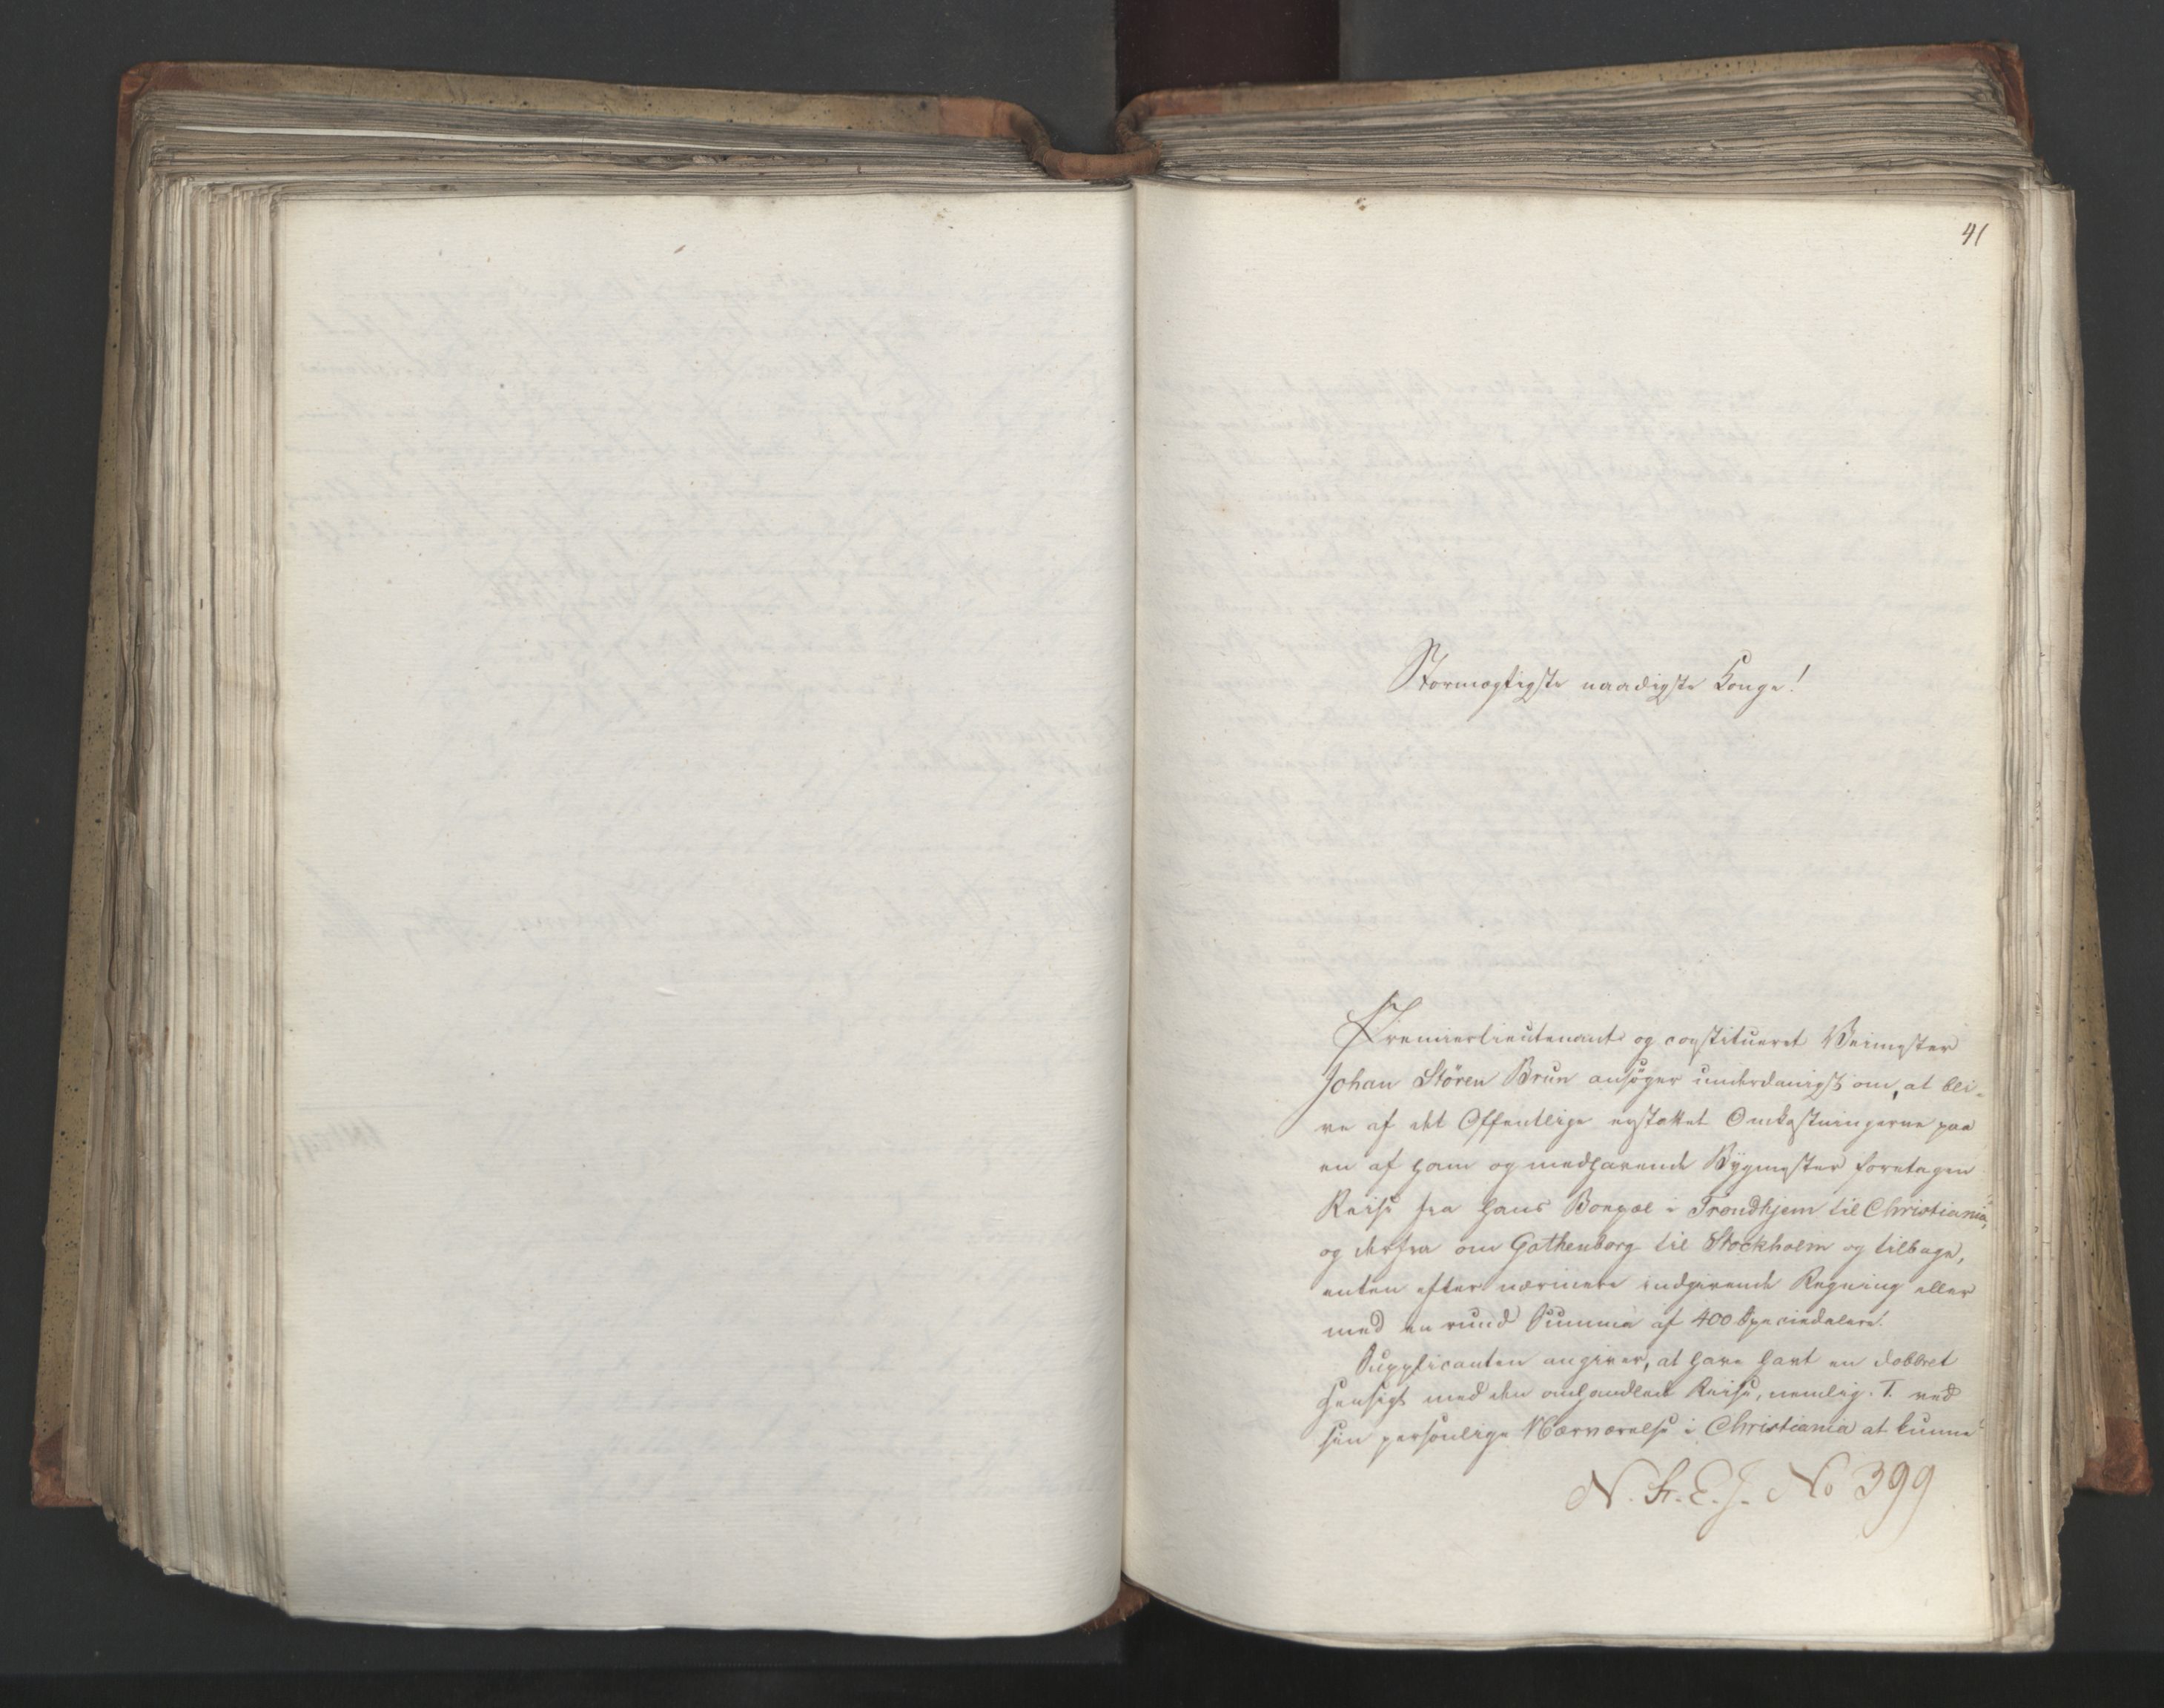 41
Stormægtigste naadigste Konge!
Premierlieutenant og constitueret Veimester
Johan Stören Brun ansöger underdanigst om, at bli-
ve af det Offentlige erstattet Omkostningerne paa
en af ham og medhavende Bygmester foretagen
Reise fra hans Bopæl i Trondhjem til Christiania,
og derfra om Gothenborg til Stockholm og tilbage,
enten efter nærmere indgivende Regning eller
med en rund Summa af 400 Speciedalere.
Supplicanten angiver, at have havt en dobbelt
Hensigt med den omhandlede Reise, nemlig: 1. ved
sin personlige Nærværelse i Christiania at kunne
N. St. E. J. No 399